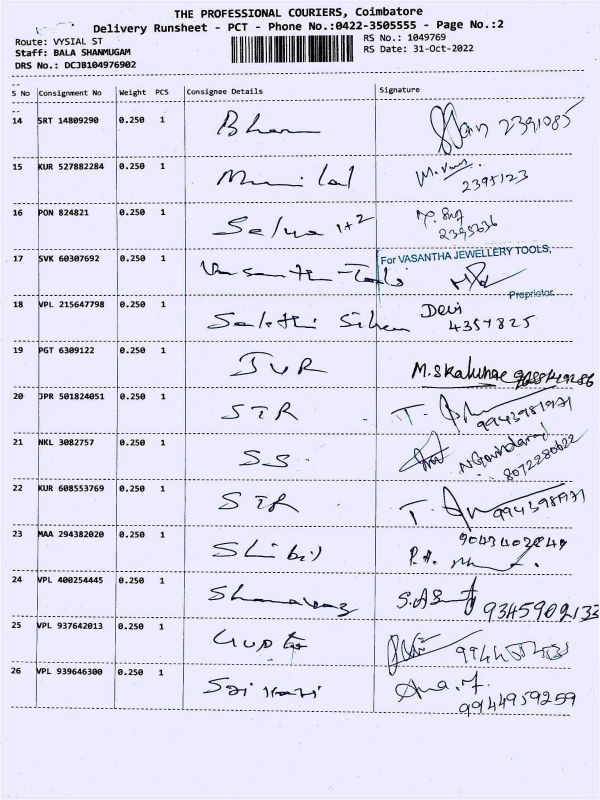 THE PROFESSIONAL COURIERS, Coimbatore
Delivery Runsheet - PCT - Phone No.:0422-3505555 - Page No.:2
Route: VYSIAL ST
RS No.: 1049769
Staff: BALA SHANMUGAM
RS Date: 31-Oct-2022
DRS No.: DCJB104976902
S No Consignment No Weight PCS Consignee Details Signature
14 SRT 14809290 0.250 1 2391085
15 KUR 527882284 0.250 1 2395123
16 PON 824821 0.250 1 Selva 1+2
17 SVK 60307692 0.250 1 Vasantha Tools
For VASANTHA JEWELLERY TOOLS,
Proprietor
18 VPL 215647798 0.250 1 Devi
4357825
19 PGT 6309122 0.250 1 JVR
20 JPR 501824051 0.250 1 STR
9943981971
21 NKL 3082757 0.250 1 SS N Govindaraj
8072280622
22 KUR 608553769 0.250 1 STR
9943981971
23 MAA 294382020 0.250 1
24 VPL 400254445 0.250 1 9345902133
25 VPL 937642013 0.250 1 Gupta
26 VPL 939646300 0.250 1 Sai
9944959259